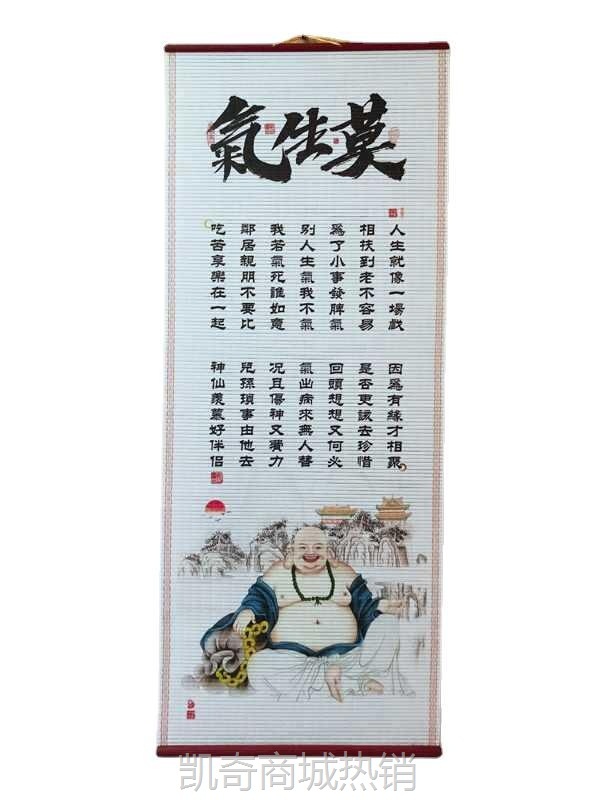 莫生氣
人生就像一場戲
因爲有緣才相聚
相扶到老不容易
是否更該去珍惜
爲了小事發脾氣
回頭想想又何必
別人生氣我不氣
氣出病來無人替
我若氣死誰如意
況且傷神又費力
鄰居親朋不要比
兒孫瑣事由他去
吃苦享樂在一起
神仙羨慕好伴侶
凯奇商城热销